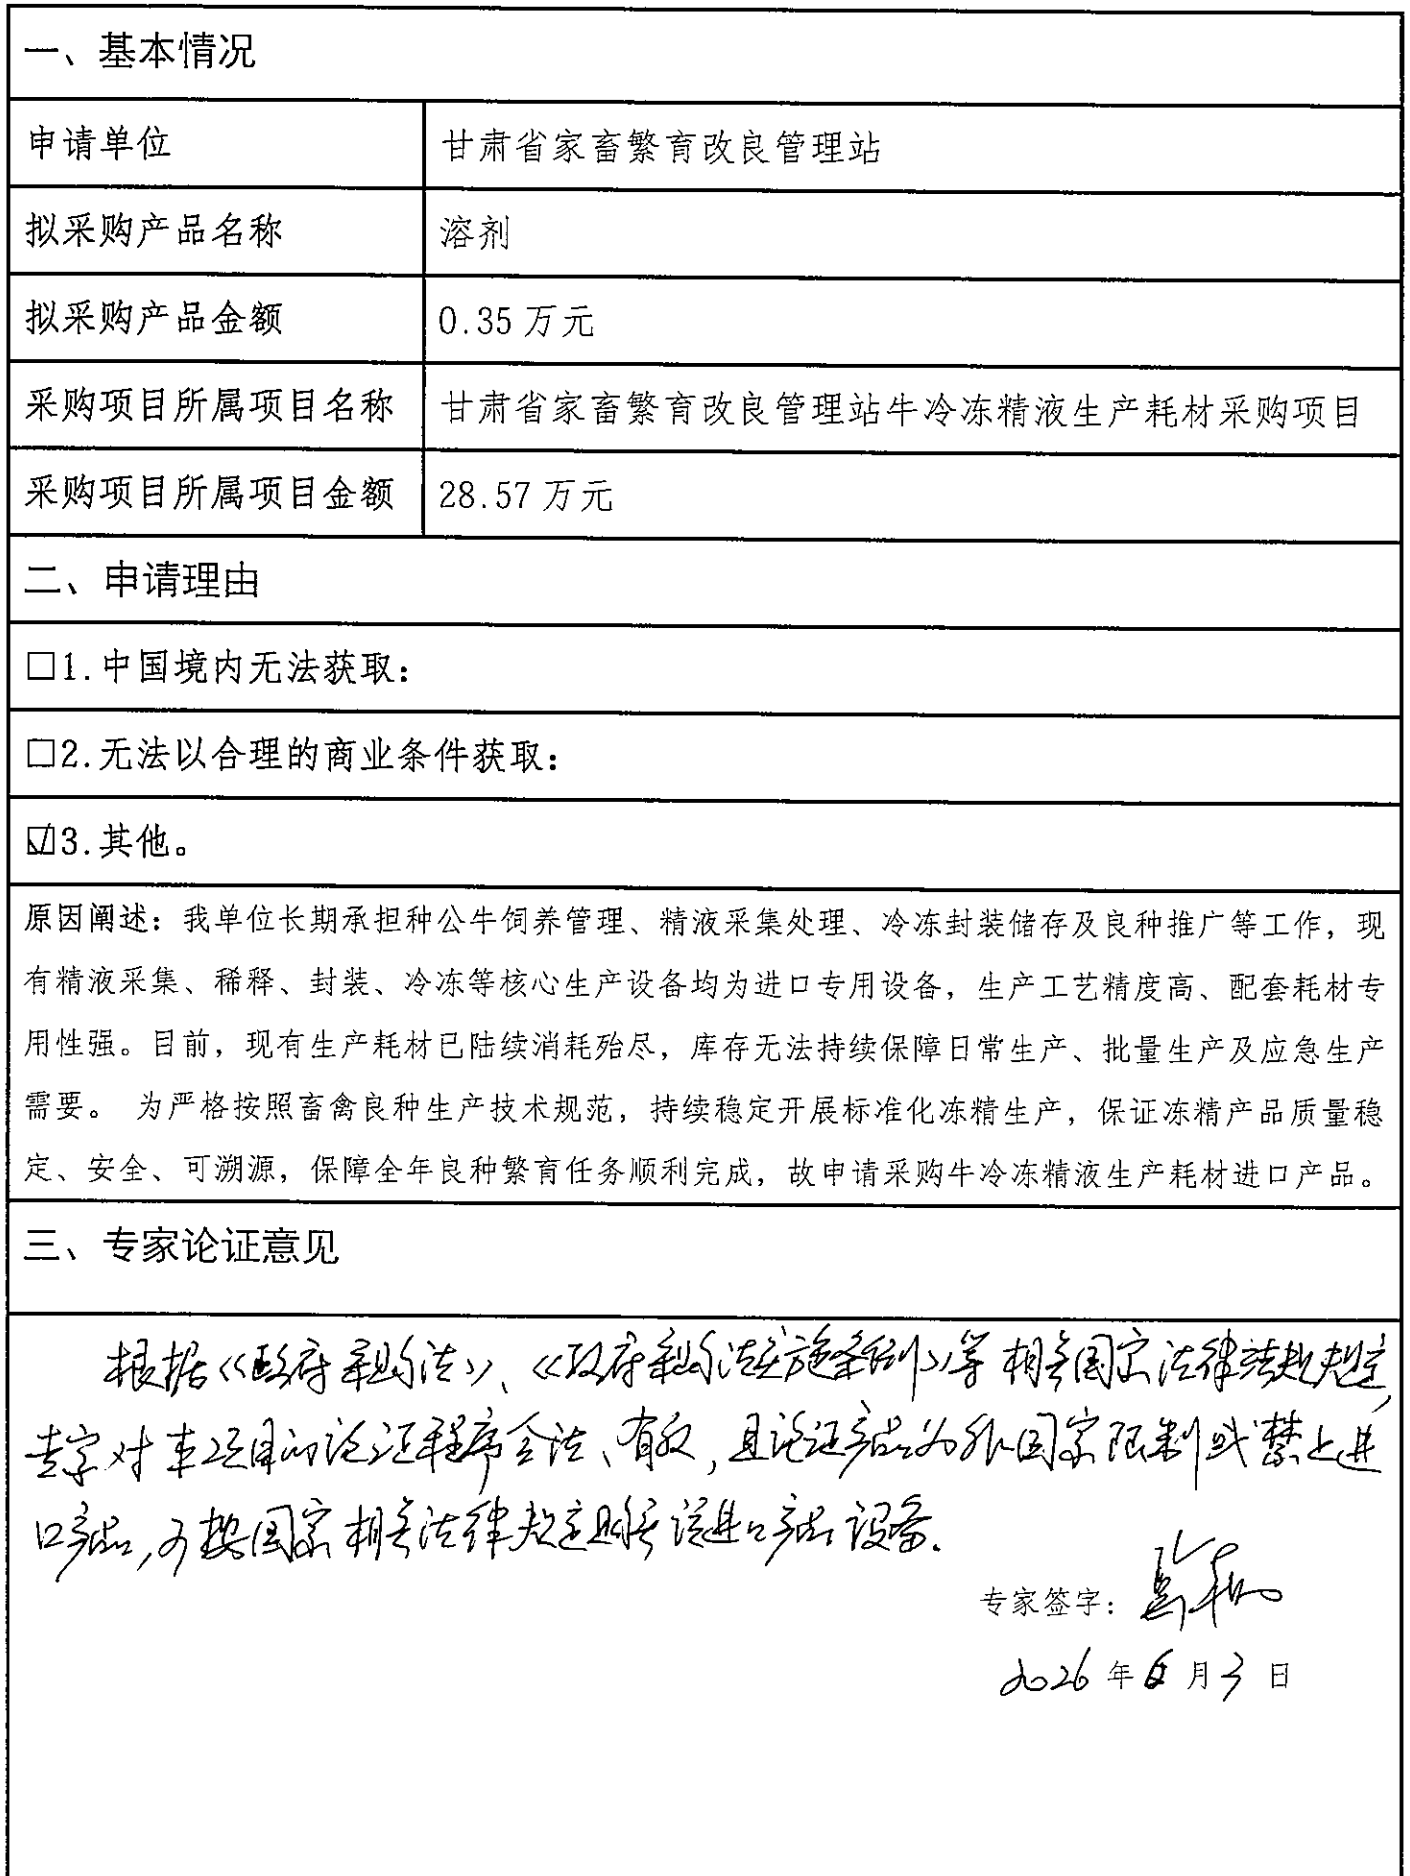 一、基本情况
申请单位 甘肃省家畜繁育改良管理站
拟采购产品名称 溶剂
拟采购产品金额 0.35万元
采购项目所属项目名称 甘肃省家畜繁育改良管理站牛冷冻精液生产耗材采购项目
采购项目所属项目金额 28.57万元
二、申请理由
□1.中国境内无法获取：
□2.无法以合理的商业条件获取：
☑3.其他。
原因阐述：我单位长期承担种公牛饲养管理、精液采集处理、冷冻封装储存及良种推广等工作，现
有精液采集、稀释、封装、冷冻等核心生产设备均为进口专用设备，生产工艺精度高、配套耗材专
用性强。目前，现有生产耗材已陆续消耗殆尽，库存无法持续保障日常生产、批量生产及应急生产
需要。 为严格按照畜禽良种生产技术规范，持续稳定开展标准化冻精生产，保证冻精产品质量稳
定、安全、可溯源，保障全年良种繁育任务顺利完成，故申请采购牛冷冻精液生产耗材进口产品。
三、专家论证意见
根据《政府采购法》、《政府采购法实施条例》等相关国家法律法规规定,
专家对本项目的论证程序合法、有效,且论证产品为非国家限制或禁止进
口产品,可按国家相关法律规定购买该进口产品设备.
专家签字：
2026年6月3日